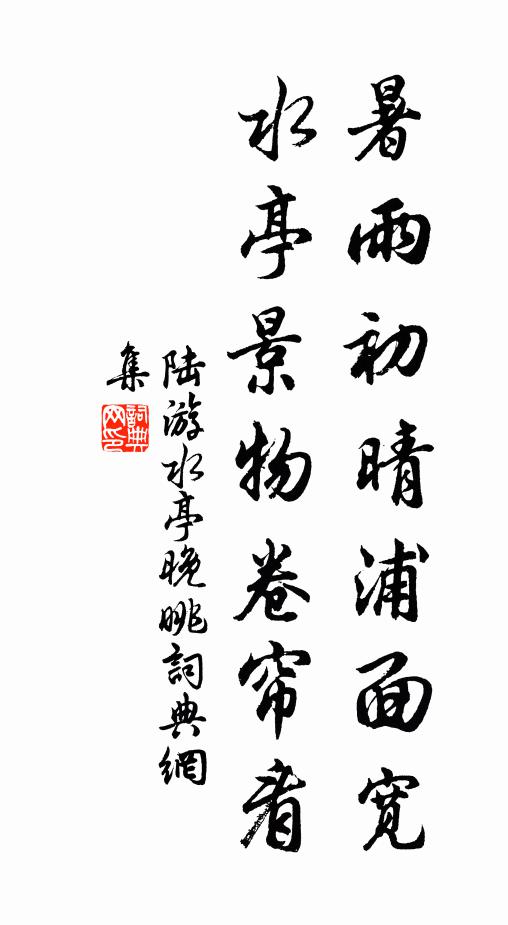 暑雨初晴浦面宽
水亭景物卷帘看
陆游水亭晚眺詞典網
集
詞典网印